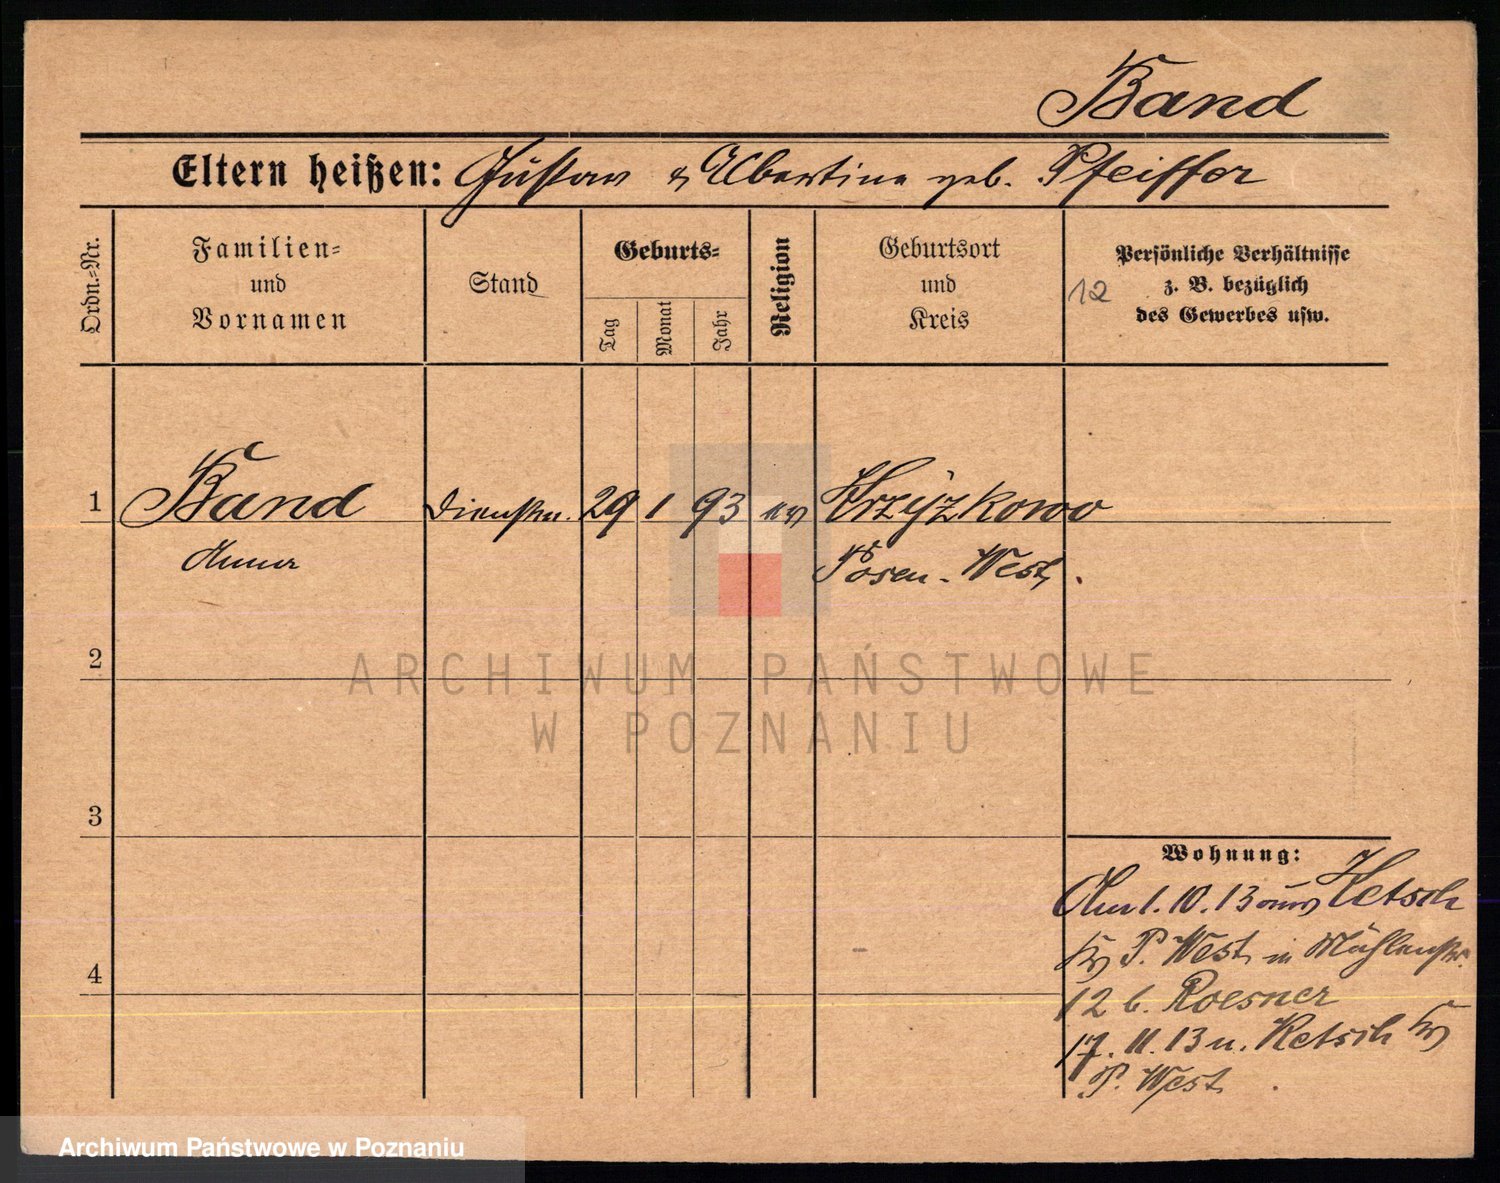 Band
Eltern heißen: Gustav & Albertine geb. Pfeiffer
Ordn.-Nr.
Familien-
und
Vornamen
Stand
Geburts-
Tag
Monat
Jahr
Religion
Geburtsort
und
Kreis
12
Persönliche Verhältnisse
z. B. bezüglich
des Gewerbes usw.
1 Band Dienstm. 29 1 93 ev Krzyzkowo
Anna Posen-West.
2
ARCHIWUM PAŃSTWOWE
W POZNANIU
3
Wohnung:
Am 1.10.13 aus Ketsch
Kr P. West in Mühlenstr.
4
12 b. Roesner
17.11.13 n. Ketsch Kr
P. West
Archiwum Państwowe w Poznaniu